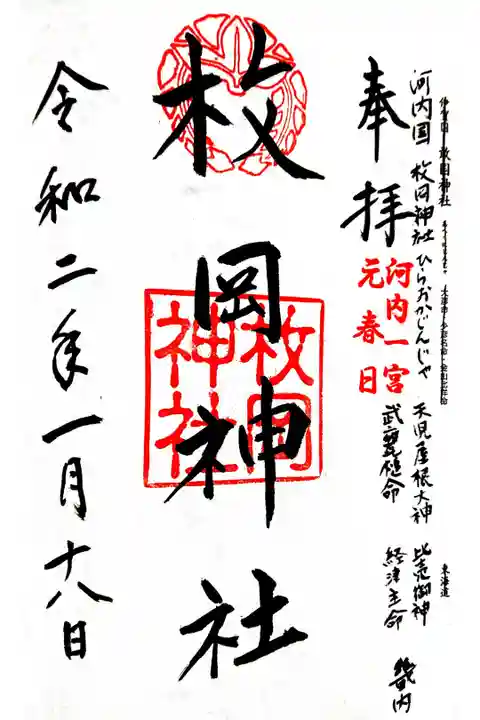 枚岡神社
河内国 枚岡神社 ひらおかじんじゃ 天児屋根大神 比売御神
武甕槌命 経津主命 畿内
東海道
奉拝
河内一宮
元春日
枚岡神社
枚岡
神社
令和二年一月十八日